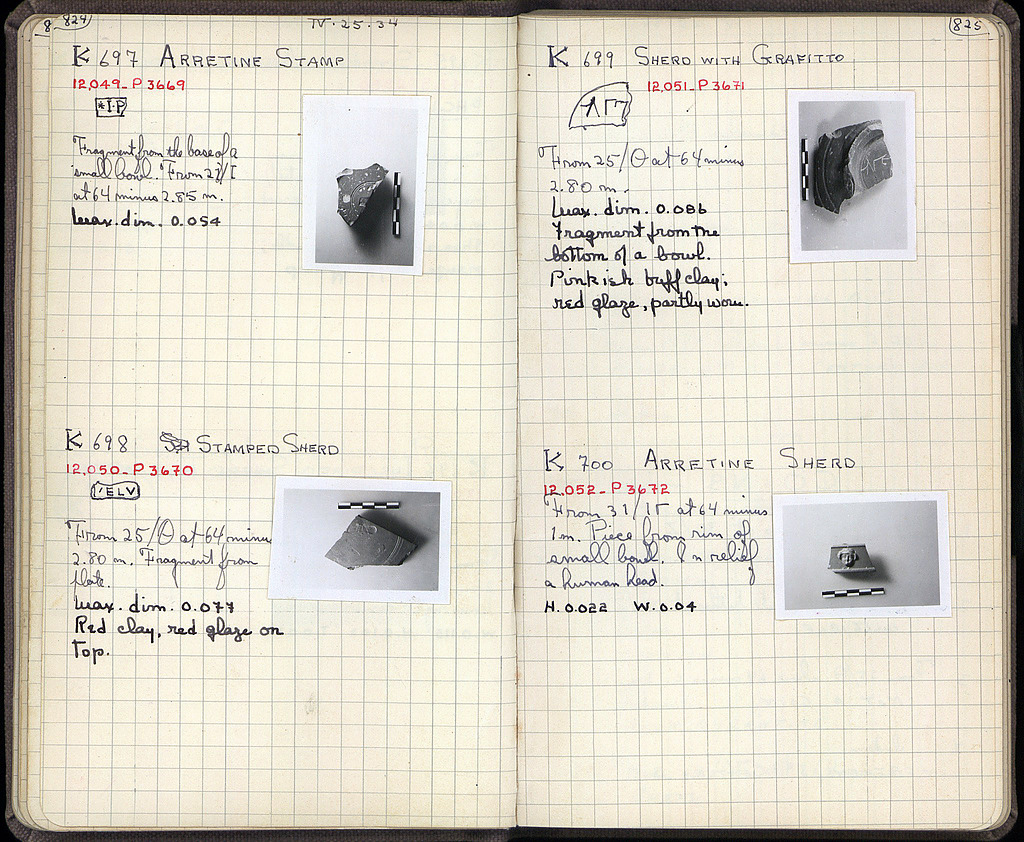 824
IV·25·34
K 697 ARRETINE STAMP
12,049 - P 3669
*I·P
Fragment from the base of a
small bowl. From
at 64 minus 2.85 m.
Max. dim. 0.054
K 698 STAMPED SHERD
12,050 - P 3670
ELV
From 25/Θ at 64 minus
2.80 m. Fragment from
plate.
Max. dim. 0.077
Red clay, red glaze on
top.
825
K 699 SHERD WITH GRAFITTO
12,051 - P 3671
From 25/Θ at 64 minus
2.80 m.
Max. dim. 0.086
Fragment from the
bottom of a bowl.
Pinkish buff clay;
red glaze, partly worn.
K 700 ARRETINE SHERD
12,052 - P 3672
From 31/ΙΓ at 64 minus
1 m. Piece from rim of
small bowl. In relief
a human head.
H. 0.022 W. 0.04